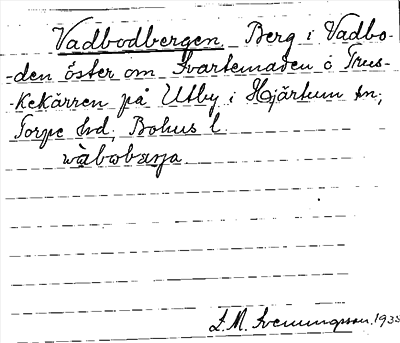 Vadbodbergen. Berg i Vadbo-
-den öster om Svartemaden o Trus-
-kekärren på Utby i Hjärtum sn;
Torpe hd; Bohus l.
wàbobærja
S. M. Svenungsson. 1935